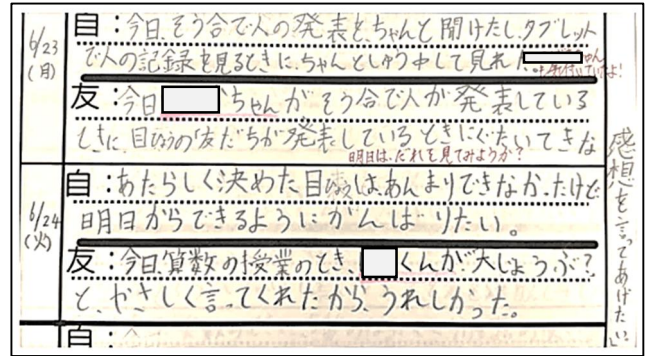 6/23
(月)
自：今日、そう合で人の発表をちゃんと聞けたし、タブレット
で人の記録を見るときに、ちゃんとしゅう中して見れ
友：今日 ちゃんがそう合で人が発表している
ときに、目ひょうの「友だちが発表しているときにぐたいてきな
明日は、だれを見てみようか？
感想を言ってあげたい」
6/24
(火)
自：あたらしく決めた目ひょうは、あんまりできなかったけど
明日からできるようにがんばりたい。
友：今日、算数の授業のとき、 くんが大じょうぶ？
と、やさしく言ってくれたから、うれしかった。
自：